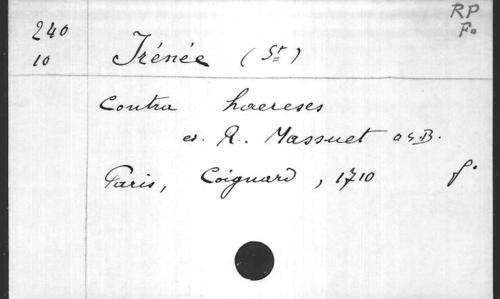 RP
F.
240
10
Irénée (St)
Contra haereses
ed. R. Massuet OSB.
Paris, Coignard, 1710 f°